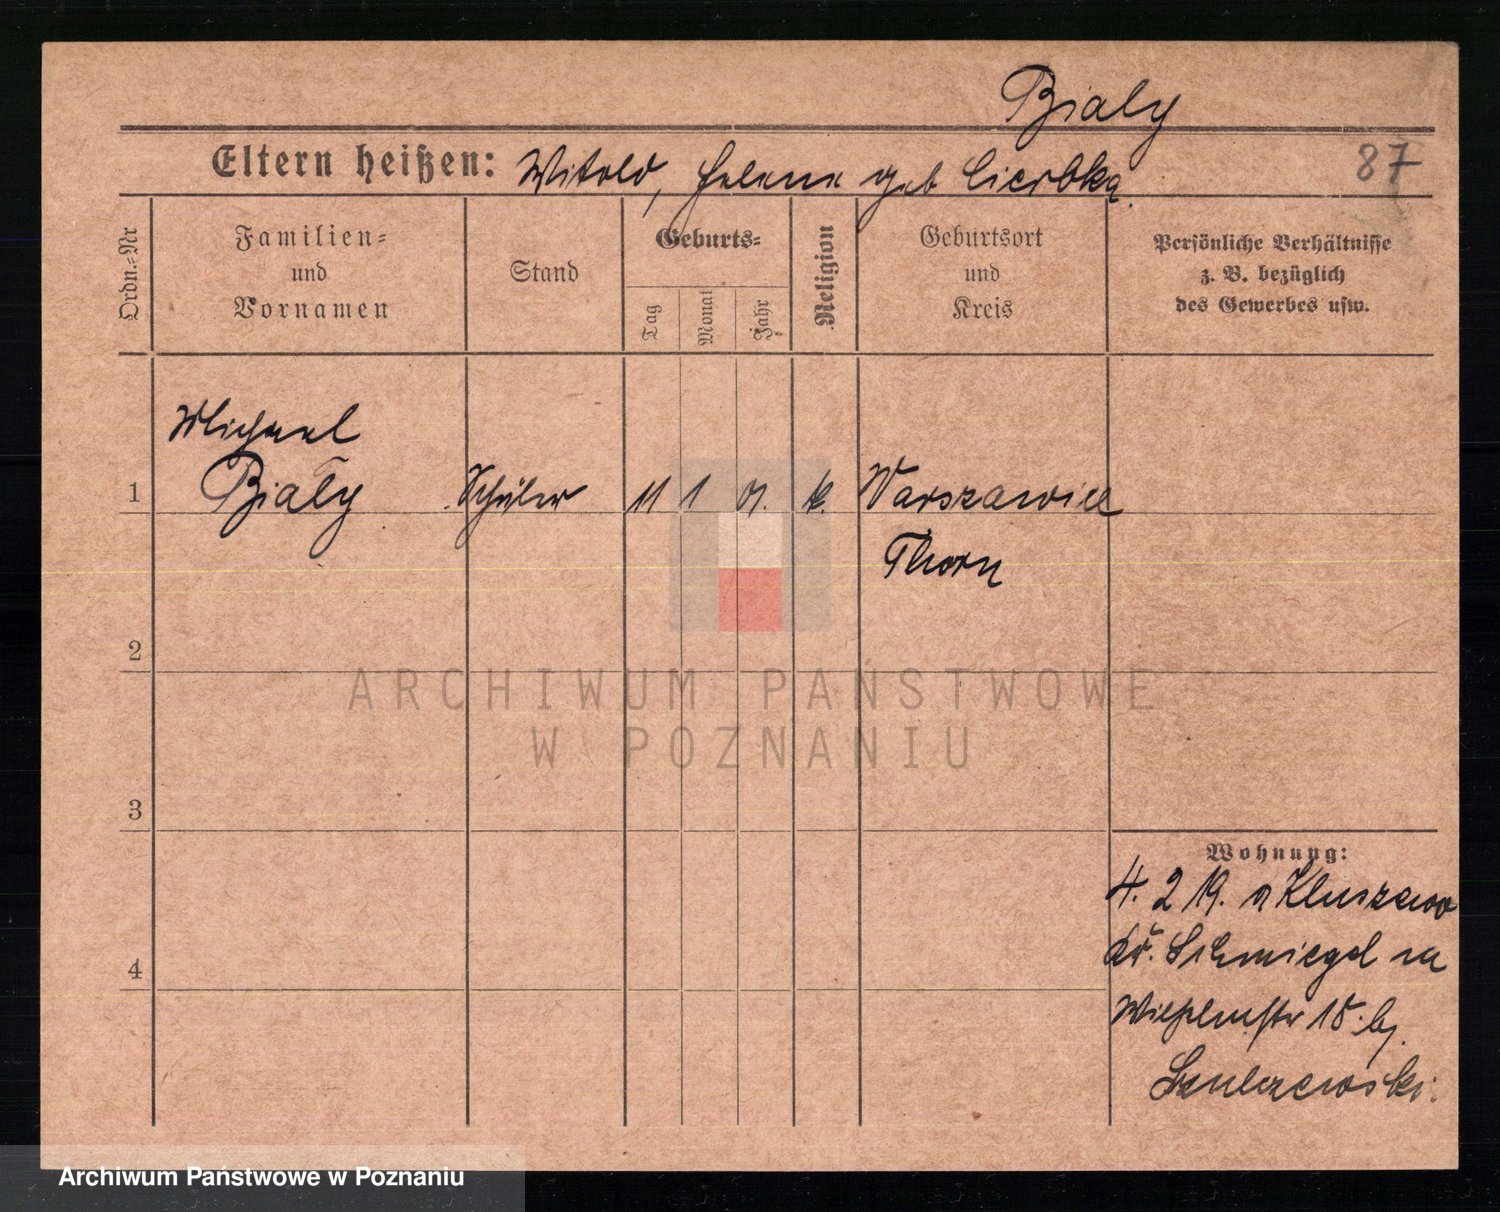 Bialy
Eltern heißen: Witold, Helene geb Cierbka.
87
Ordn.=Nr
Familien=
und
Vornamen
Stand
Geburts=
Tag
Monat
Jahr
Religion
Geburtsort
und
Kreis
Persönliche Verhältnisse
z. B. bezüglich
des Gewerbes usw.
Michael
1 Biały Schüler 11 1 01. k. Warszawice
Thorn
2
ARCHIWUM PAŃSTWOWE
W POZNANIU
3
Wohnung:
4. 2 19. Kluszewo
Kr. Schmiegel
4
Wilhelmstr 10.
Archiwum Państwowe w Poznaniu